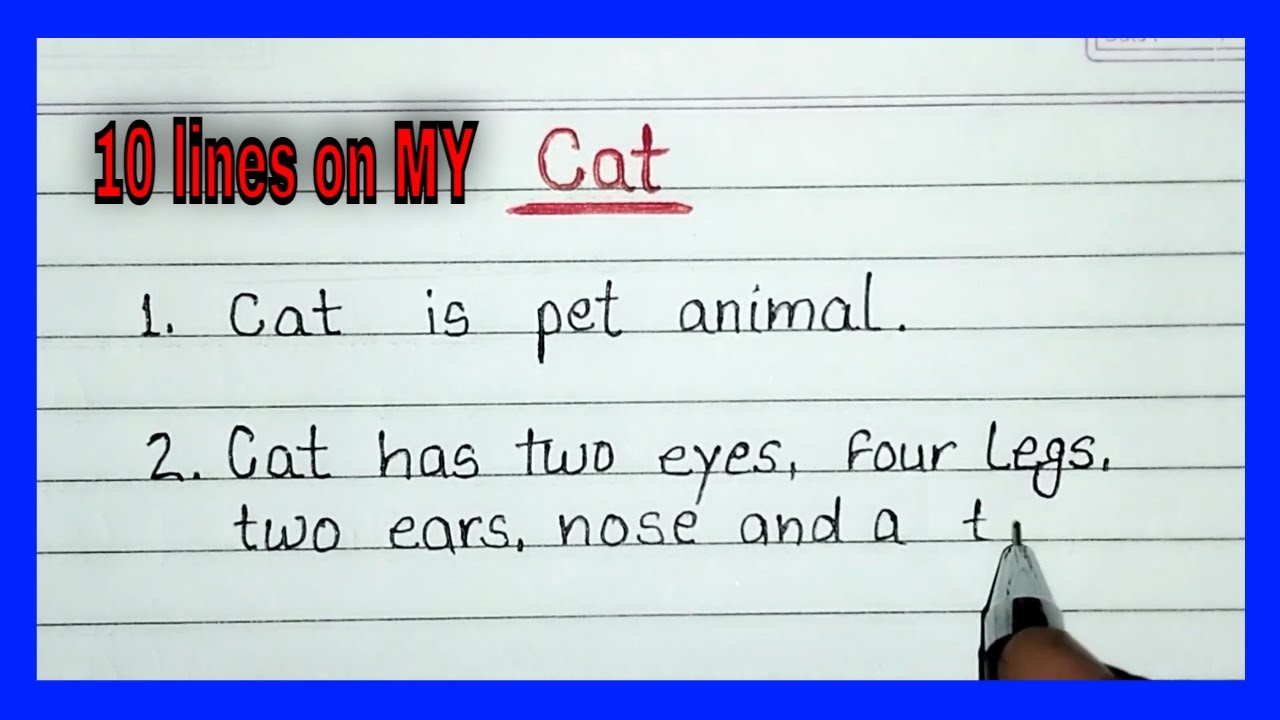 10 lines on MY Cat
1. Cat is pet animal.
2. Cat has two eyes, four legs,
two ears, nose and a t